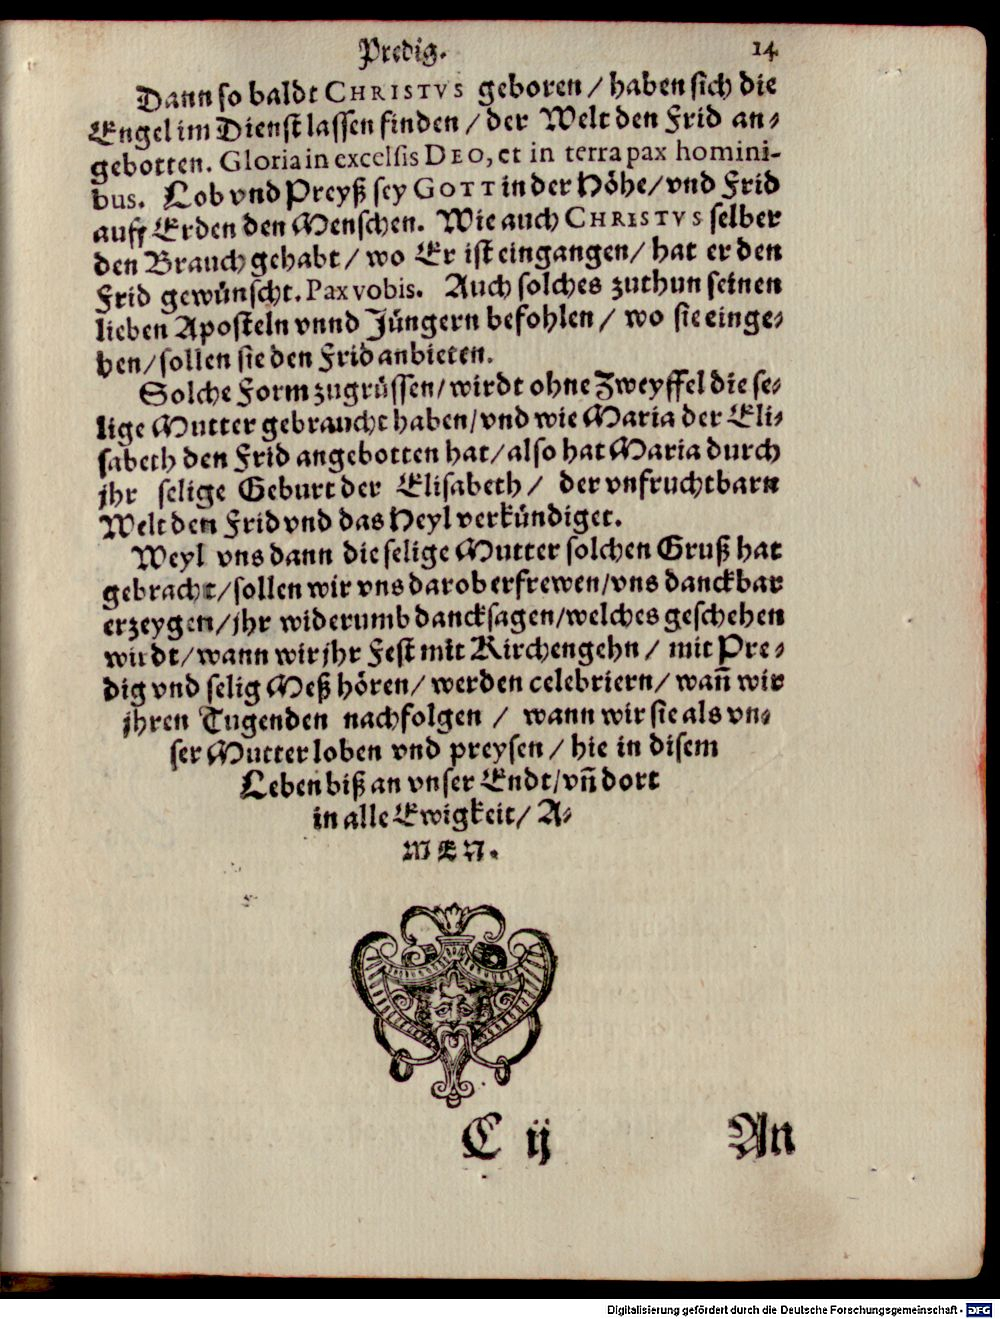 Predig. 14
Dann so baldt CHRISTVS geboren / haben sich die
Engel im Dienst lassen finden / der Welt den Frid an-
gebotten. Gloria in excelsis DEO, et in terra pax homini-
bus. Lob vnd Preyß sey GOTT in der Höhe / vnd Frid
auff Erden den Menschen. Wie auch CHRISTVS selber
den Brauch gehabt / wo Er ist eingangen / hat er den
Frid gewünscht. Pax vobis. Auch solches zuthun seinen
lieben Aposteln vnnd Jüngern befohlen / wo sie einge-
hen / sollen sie den Frid anbieten.
Solche Form zugrüssen / wirdt ohne Zweyffel die se-
lige Mutter gebraucht haben / vnd wie Maria der Eli-
sabeth den Frid angebotten hat / also hat Maria durch
jhr selige Geburt der Elisabeth / der vnfruchtbarn
Welt den Frid vnd das Heyl verkündiget.
Weyl vns dann die selige Mutter solchen Gruß hat
gebracht / sollen wir vns darob erfrewen / vns danckbar
erzeygen / jhr widerumb dancksagen / welches geschehen
wirdt / wann wir jhr Fest mit Kirchengehn / mit Pre-
dig vnd selig Meß hören / werden celebriern / wañ wir
jhren Tugenden nachfolgen / wann wir sie als vn-
ser Mutter loben vnd preysen / hie in disem
Leben biß an vnser Endt / vñ dort
in alle Ewigkeit / A-
MEN.
C ij An
Digitalisierung gefördert durch die Deutsche Forschungsgemeinschaft - DFG